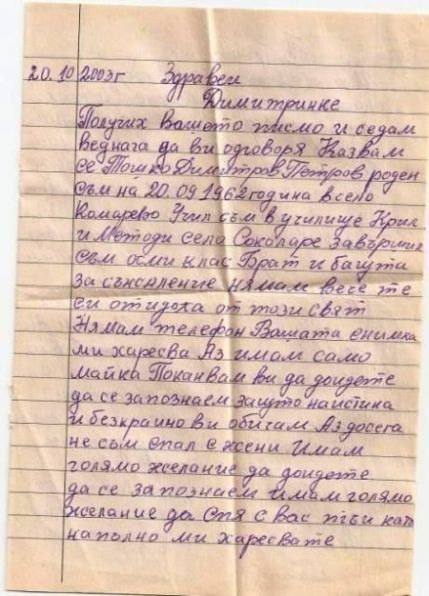 20.10 2003г Здравей
Димитринке
Получих вашето писмо и седам
веднага да ви одговоря Казвам
се Тошко Димитров Петров роден
съм на 20.09 1962 година в село
Комарево Учил съм в училище Крил
и Методи село Соколаре завършил
съм осми клас Брат и бащта
за съжеление нямам вече те
си отидоха от този свят
Нямам телефон Вашата снимка
ми харесва Аз имам само
майка Поканвам ви да дойдете
да се запознаем защто наистина
и безкраино ви обичам Аз досега
не съм спал с жени Имам
голямо желание да дойдете
да се запознаем имам голямо
желание да спя с вас тъи като
напълно ми харесвате